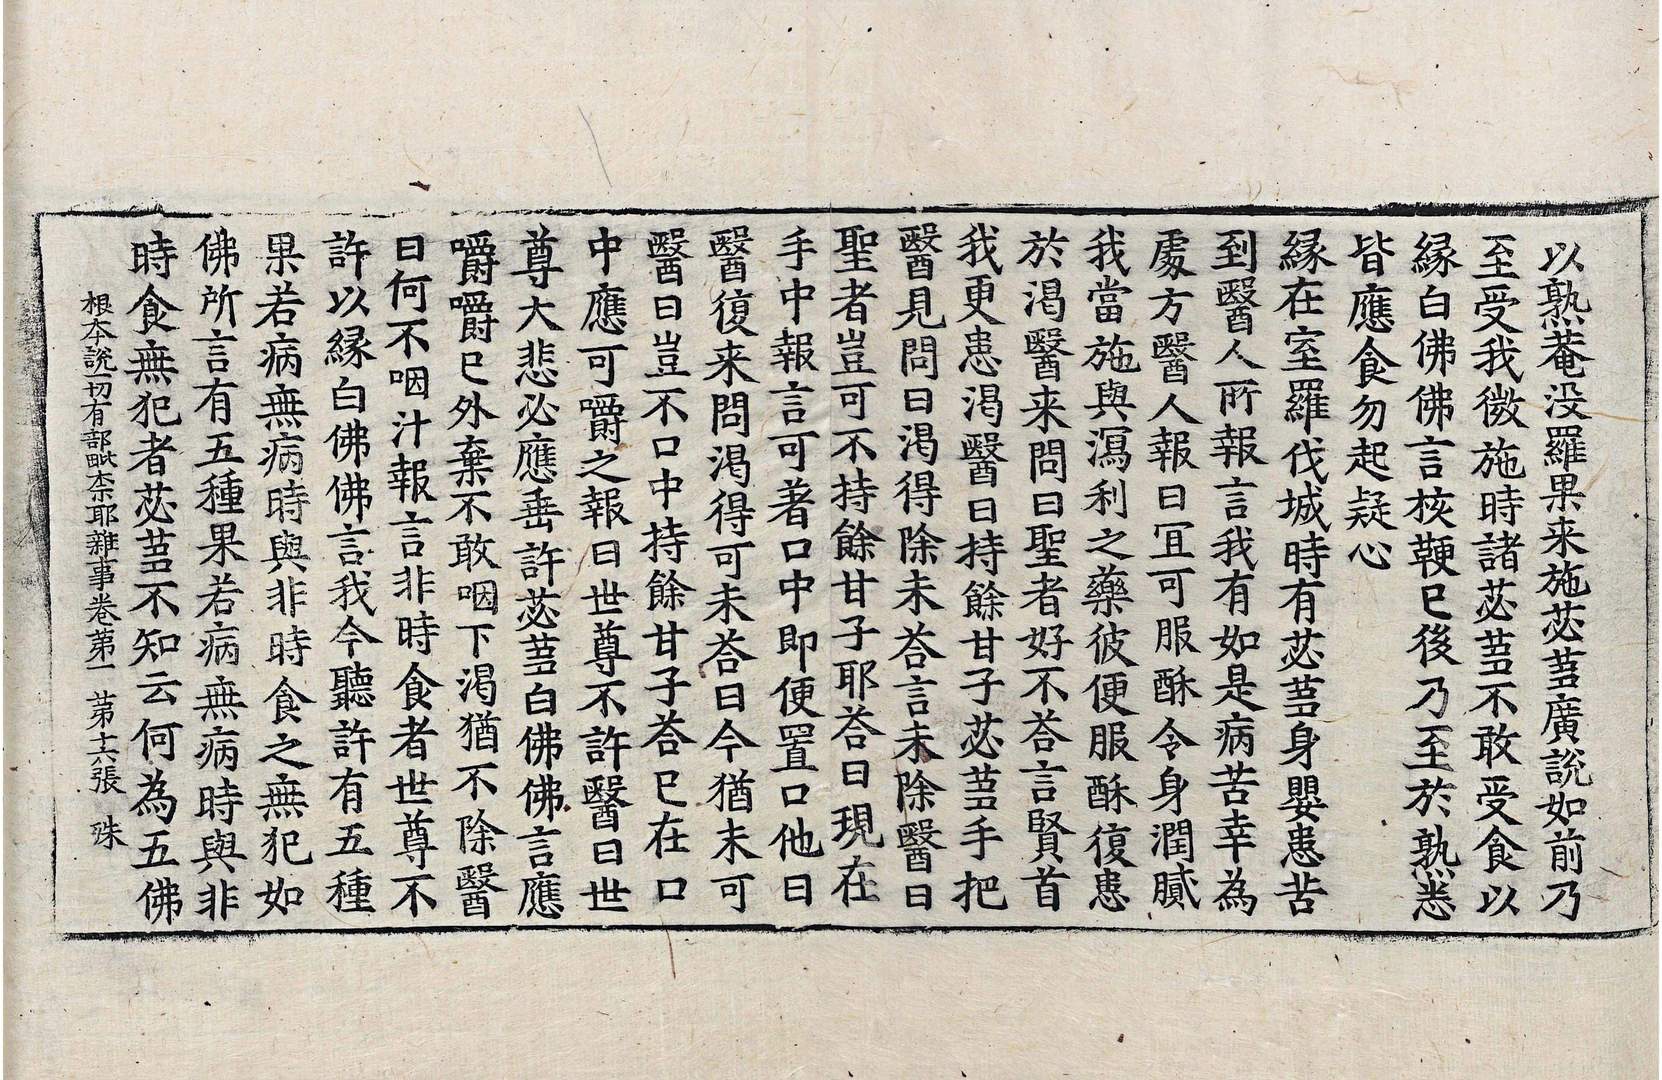 以熟菴没羅果来施苾芻廣說如前乃
至受我微施時諸苾芻不敢受食以
緣白佛佛言核鞕已後乃至於熟悉
皆應食勿起疑心
緣在室羅伐城時有苾芻身嬰患苦
到醫人所報言我有如是病苦幸為
處方醫人報曰冝可服酥令身潤膩
我當施與瀉利之藥彼便服酥復患
於渴醫来問曰聖者好不荅言賢首
我更患渴醫曰持餘甘子苾芻手把
醫見問曰渴得除未荅言未除醫曰
聖者豈可不持餘甘子耶荅曰現在
手中報言可著口中即便置口他日
醫復来問渴得可未荅曰今猶未可
醫曰豈不口中持餘甘子荅已在口
中應可嚼之報曰世尊不許醫曰世
尊大悲必應垂許苾芻白佛佛言應
嚼嚼已外棄不敢咽下渴猶不除醫
曰何不咽汁報言非時食者世尊不
許以緣白佛佛言我今聽許有五種
果若病無病時與非時食之無犯如
佛所言有五種果若病無病時與非
時食無犯者苾芻不知云何為五佛
根本說一切有部毗柰耶雜事卷第一　第十六張　殊